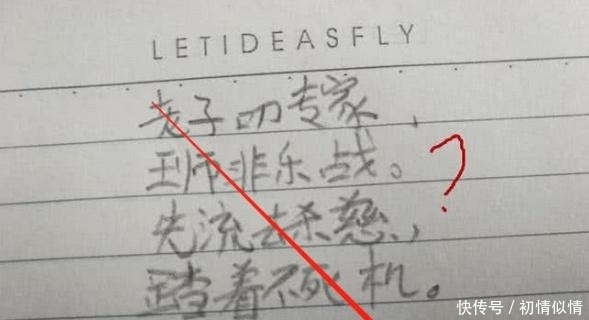 LETIDEASFLY
老子叨专家,
王师非乐战。
先流去杀慈,
踏着不死机。
?
快传号/初情似情